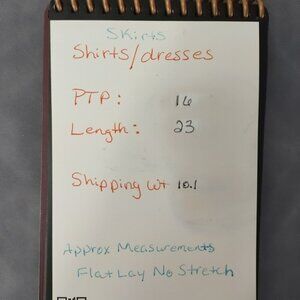 Skirts
Shirts/dresses
PTP: 16
Length: 23
Shipping wt 10.1
Approx Measurements
Flat Lay No Stretch